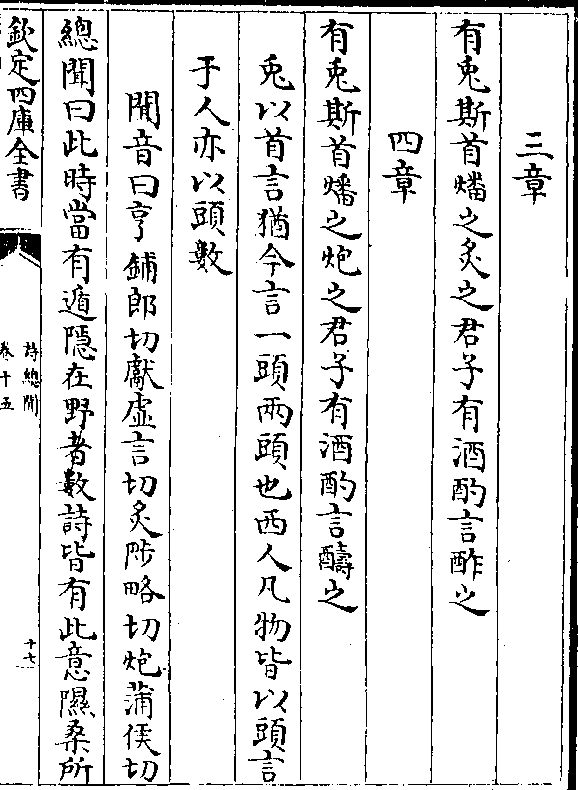 三章
有兎斯首燔之炙之君子有酒酌言酢之
四章
有兎斯首燔之炮之君子有酒酌言醻之
兎以首言猶今言一頭兩頭也西人凡物皆以頭言
于人亦以頭數
聞音曰亨鋪郎切獻虛言切炙陟略切炮蒲侯切
總聞曰此時當有遁隱在野者數詩皆有此意隰桑所
欽定四庫全書
詩總聞
卷十五
十七